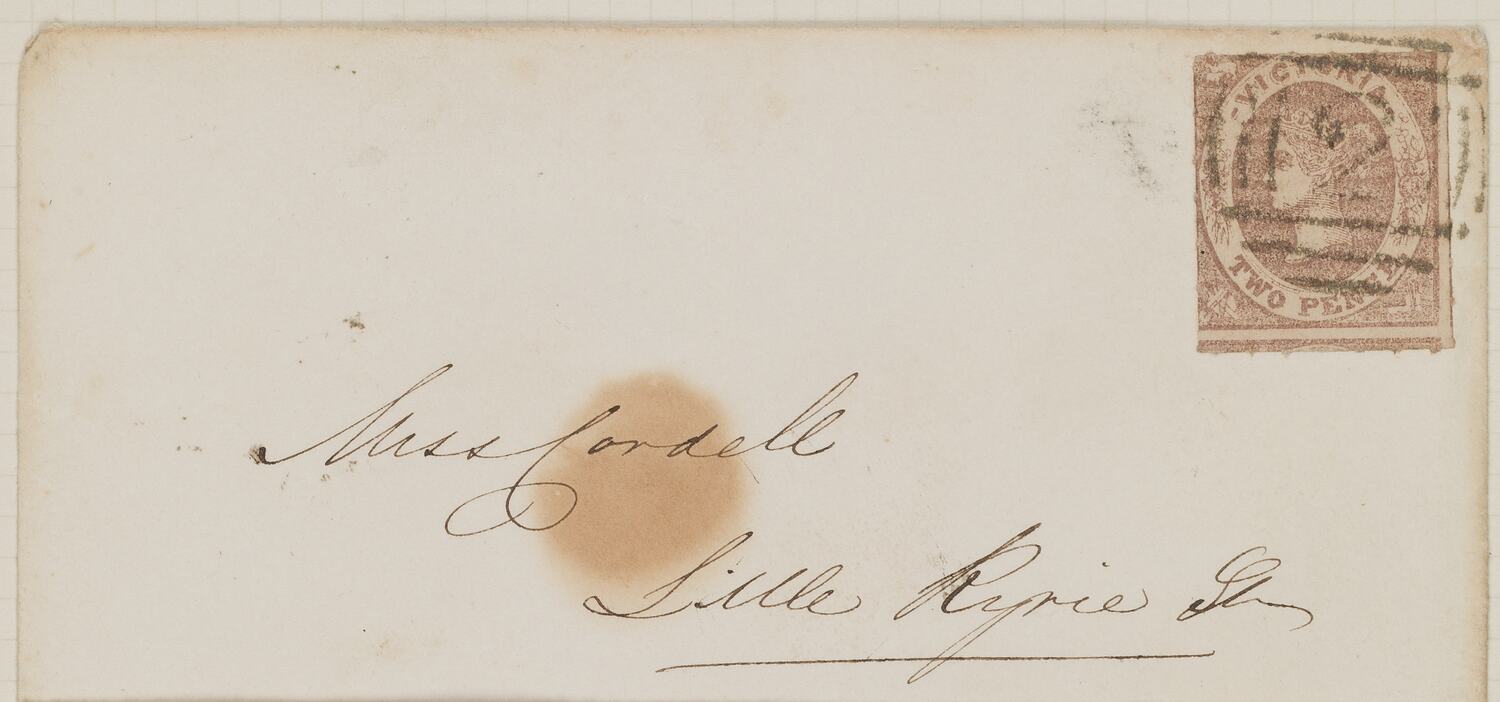 VICTORIA
TWO PENCE
Miss Cordell
Little Ryrie St